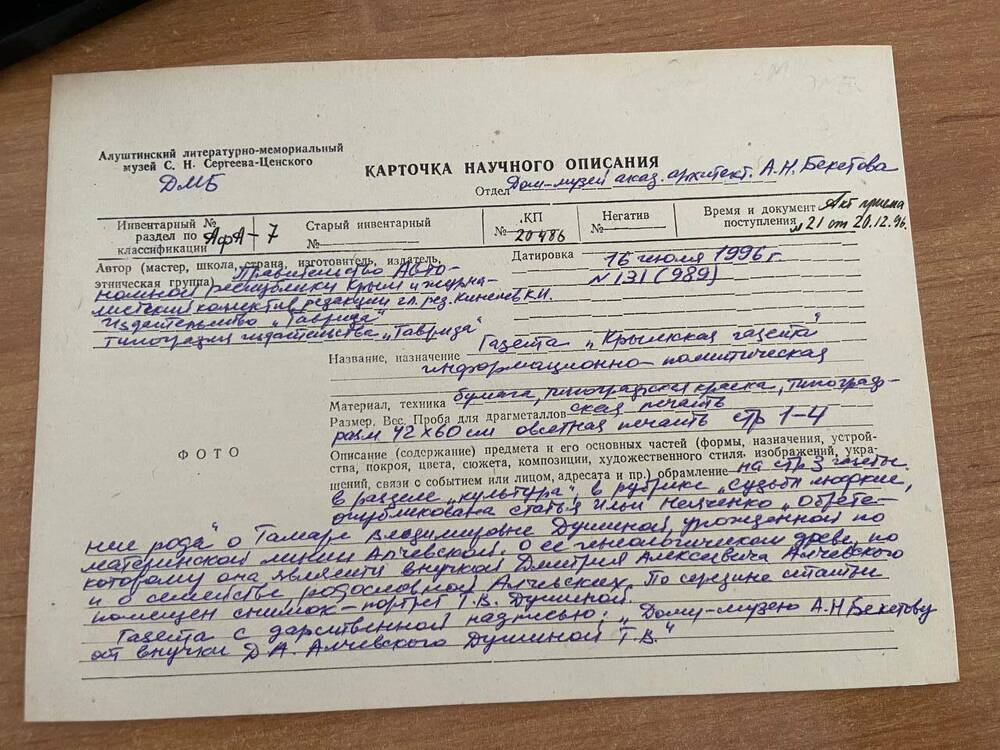 Алуштинский литературно-мемориальный
музей С. Н. Сергеева-Ценского
ДМБ
КАРТОЧКА НАУЧНОГО ОПИСАНИЯ
Отдел Дом-музей акад. архитект. А.Н. Бекетова
Инвентарный №
раздел по
классификации АфА-7
Старый инвентарный
№
КП
№ 20486
Негатив
№
Время и документ Акт приема
поступления №21 от 20.12.96
Автор (мастер, школа, страна, изготовитель, издатель,
этническая группа) Правительство Авто-
номной республики Крым и журна-
листский коллектив редакции гл. ред.
Издательство "Таврида"
типография издательства "Таврида"
Датировка 16 июля 1996 г
N 131 (989)
Название, назначение Газета "Крымская газета"
информационно-политическая
Материал, техника бумага, типографская краска, типограф-
Размер. Вес. Проба для драгметаллов ская печать
разм 42х60 см офсетная печать стр 1-4
ФОТО
Описание (содержание) предмета и его основных частей (формы, назначения, устрой-
ства, покроя, цвета, сюжета, композиции, художественного стиля, изображений, укра-
шений, связи с событием или лицом, адресата и пр.) обрамление на стр 3 газеты
в разделе "культура", в рубрике "Судьбы людские,
опубликована статья Ильи "Обрете-
ние рода" о Тамаре Владимировне Душиной, урожденной по
материнской линии Алчевской. О ее генеологическом древе, по
которому она является внучкой Дмитрия Алексеевича Алчевского
и о семействе родословной Алчевских. По середине статьи
помещен снимок-портрет Т.В. Душиной.
Газета с дарственной надписью: "Дому-музею А.Н Бекетову
от внучки Д А. Алчевского Душиной Т.В."